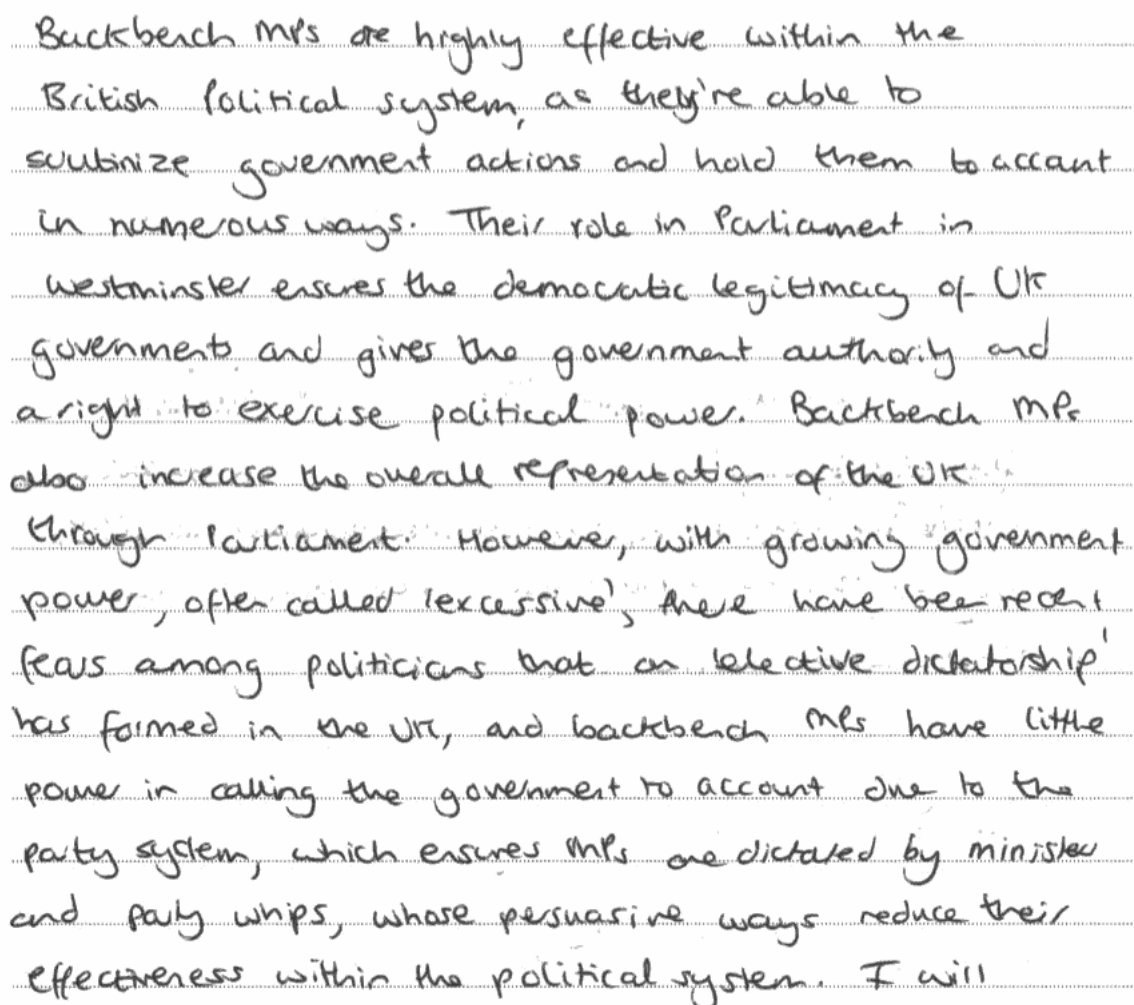 Backbench MPs are highly effective within the
British Political system, as they're able to
scrutinize government actions and hold them to accant
in numerous ways. Their role in Parliament in
westminster ensures the democratic legitimacy of UK
governments and gives the government authority and
a right to exercise political power. Backbench MPs
also increase the overall representation of the UK
through Parliament. However, with growing government
power, often called 'excessive', there have been recent
fears among politicians that an 'elective dictatorship'
has formed in the UK, and backbench MPs have little
power in calling the government to account due to the
party system, which ensures MPs are dictated by minister
and party whips, whose persuasive ways reduce their
effectiveness within the political system. I will